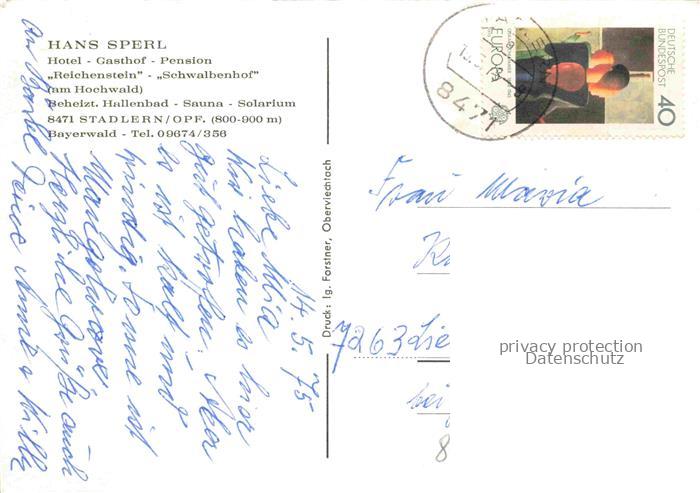 HANS SPERL
Hotel - Gasthof - Pension
„Reichenstein" - „Schwalbenhof"
(am Hochwald)
Beheizt. Hallenbad - Sauna - Solarium
8471 STADLERN/OPF. (800-900 m)
Bayerwald - Tel. 09674/356
14. 5. 75
Liebe Mia
Wir haben es hier
gut getroffen. Aber
es ist kalt und
windig, Sonne ist
Mangelware
Herzliche Grüße auch
Willy
Druck: Ig. Forstner, Oberviechtach
DEUTSCHE
BUNDESPOST
40
EUROPA
8471
Frau Maria
7263 Lie
bei
8
privacy protection
Datenschutz